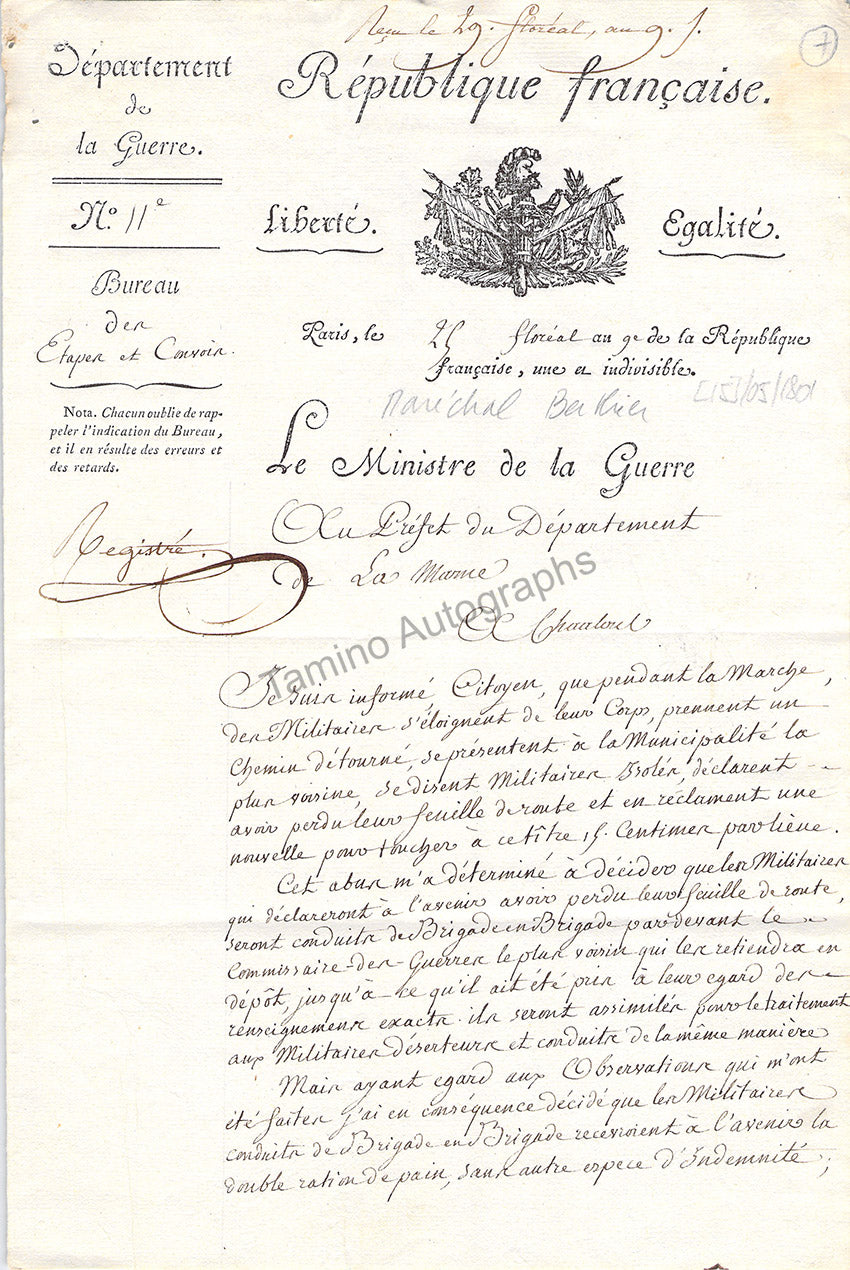 Reçu le 29. floréal, an 9. f.
7
Département
de
la Guerre.
N.º 11e
Bureau
des
Etapes et Convois.
Nota. Chacun oublie de rap-
peler l'indication du Bureau,
et il en résulte des erreurs et
des retards.
Registré.
République française.
Liberté.
Egalité.
Paris, le 25 floréal an 9e de la République
française, une et indivisible.
Maréchal Berthier [15]/05/1801
Le Ministre de la Guerre
Au Préfet du Département
de La Marne
A Chaalons
Tamino Autographs
Je suis informé Citoyen, que pendant la Marche,
des Militaires s'éloignent de leur Corps, prennent un
Chemin détourné, se présentent à la Municipalité la
plus voisine, se disent Militaires Isolés, déclarent
avoir perdu leur feuille de route et en réclament une
nouvelle pour toucher à ce tître 15. Centimes par liève.
Cet abus m'a déterminé à décider que les Militaires
qui déclareront à l'avenir avoir perdu leur feuille de route,
seront conduits de Brigade en Brigade pardevant le
Commissaire-des-Guerres le plus voisin qui les retiendra en
dépôt, jusqu'à-ce qu'il ait été pris à leur egard des
renseignemens exacts. ils seront assimilés pour le traitement
aux Militaires déserteurs et conduits de la même manière
Mais ayant egard aux Observations qui m'ont
été faites j'ai en conséquence décidé que les Militaires
conduits de Brigade en Brigade recevroient à l'avenir la
double ration de pain, sans autre espece d'Indemnité;